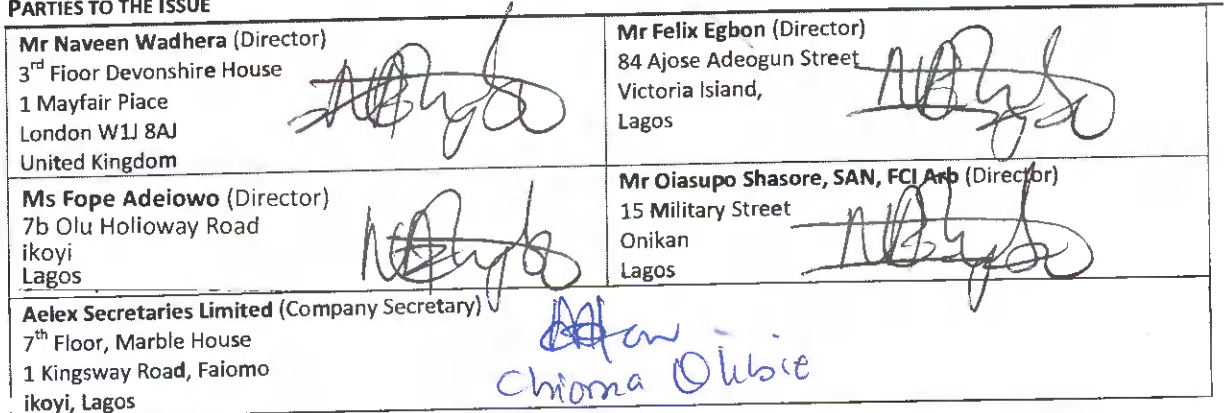 PARTIES TO THE ISSUE
Mr Naveen Wadhera (Director)
3rd Floor Devonshire House
1 Mayfair Piace
London W1J 8AJ
United Kingdom
Mr Felix Egbon (Director)
84 Ajose Adeogun Street
Victoria Island,
Lagos
Ms Fope Adeiowo (Director)
7b Olu Holioway Road
ikoyi
Lagos
Mr Oiasupo Shasore, SAN, FCI Arb (Director)
15 Military Street
Onikan
Lagos
Aelex Secretaries Limited (Company Secretary)
7th Floor, Marble House
1 Kingsway Road, Faiomo
ikoyi, Lagos
Chioma